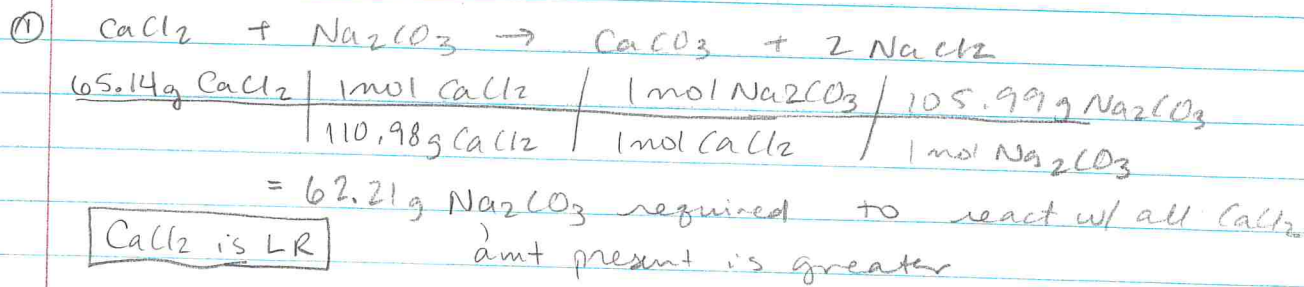 ① CaCl2 + Na2CO3 → CaCO3 + 2 NaCl2
65.14g CaCl2 | 1mol CaCl2 / 1mol Na2CO3 / 105.99g Na2CO3
110.98g CaCl2 / 1mol CaCl2 / 1mol Na2CO3
= 62.21g Na2CO3 required to react w/ all CaCl2
CaCl2 is LR amt present is greater